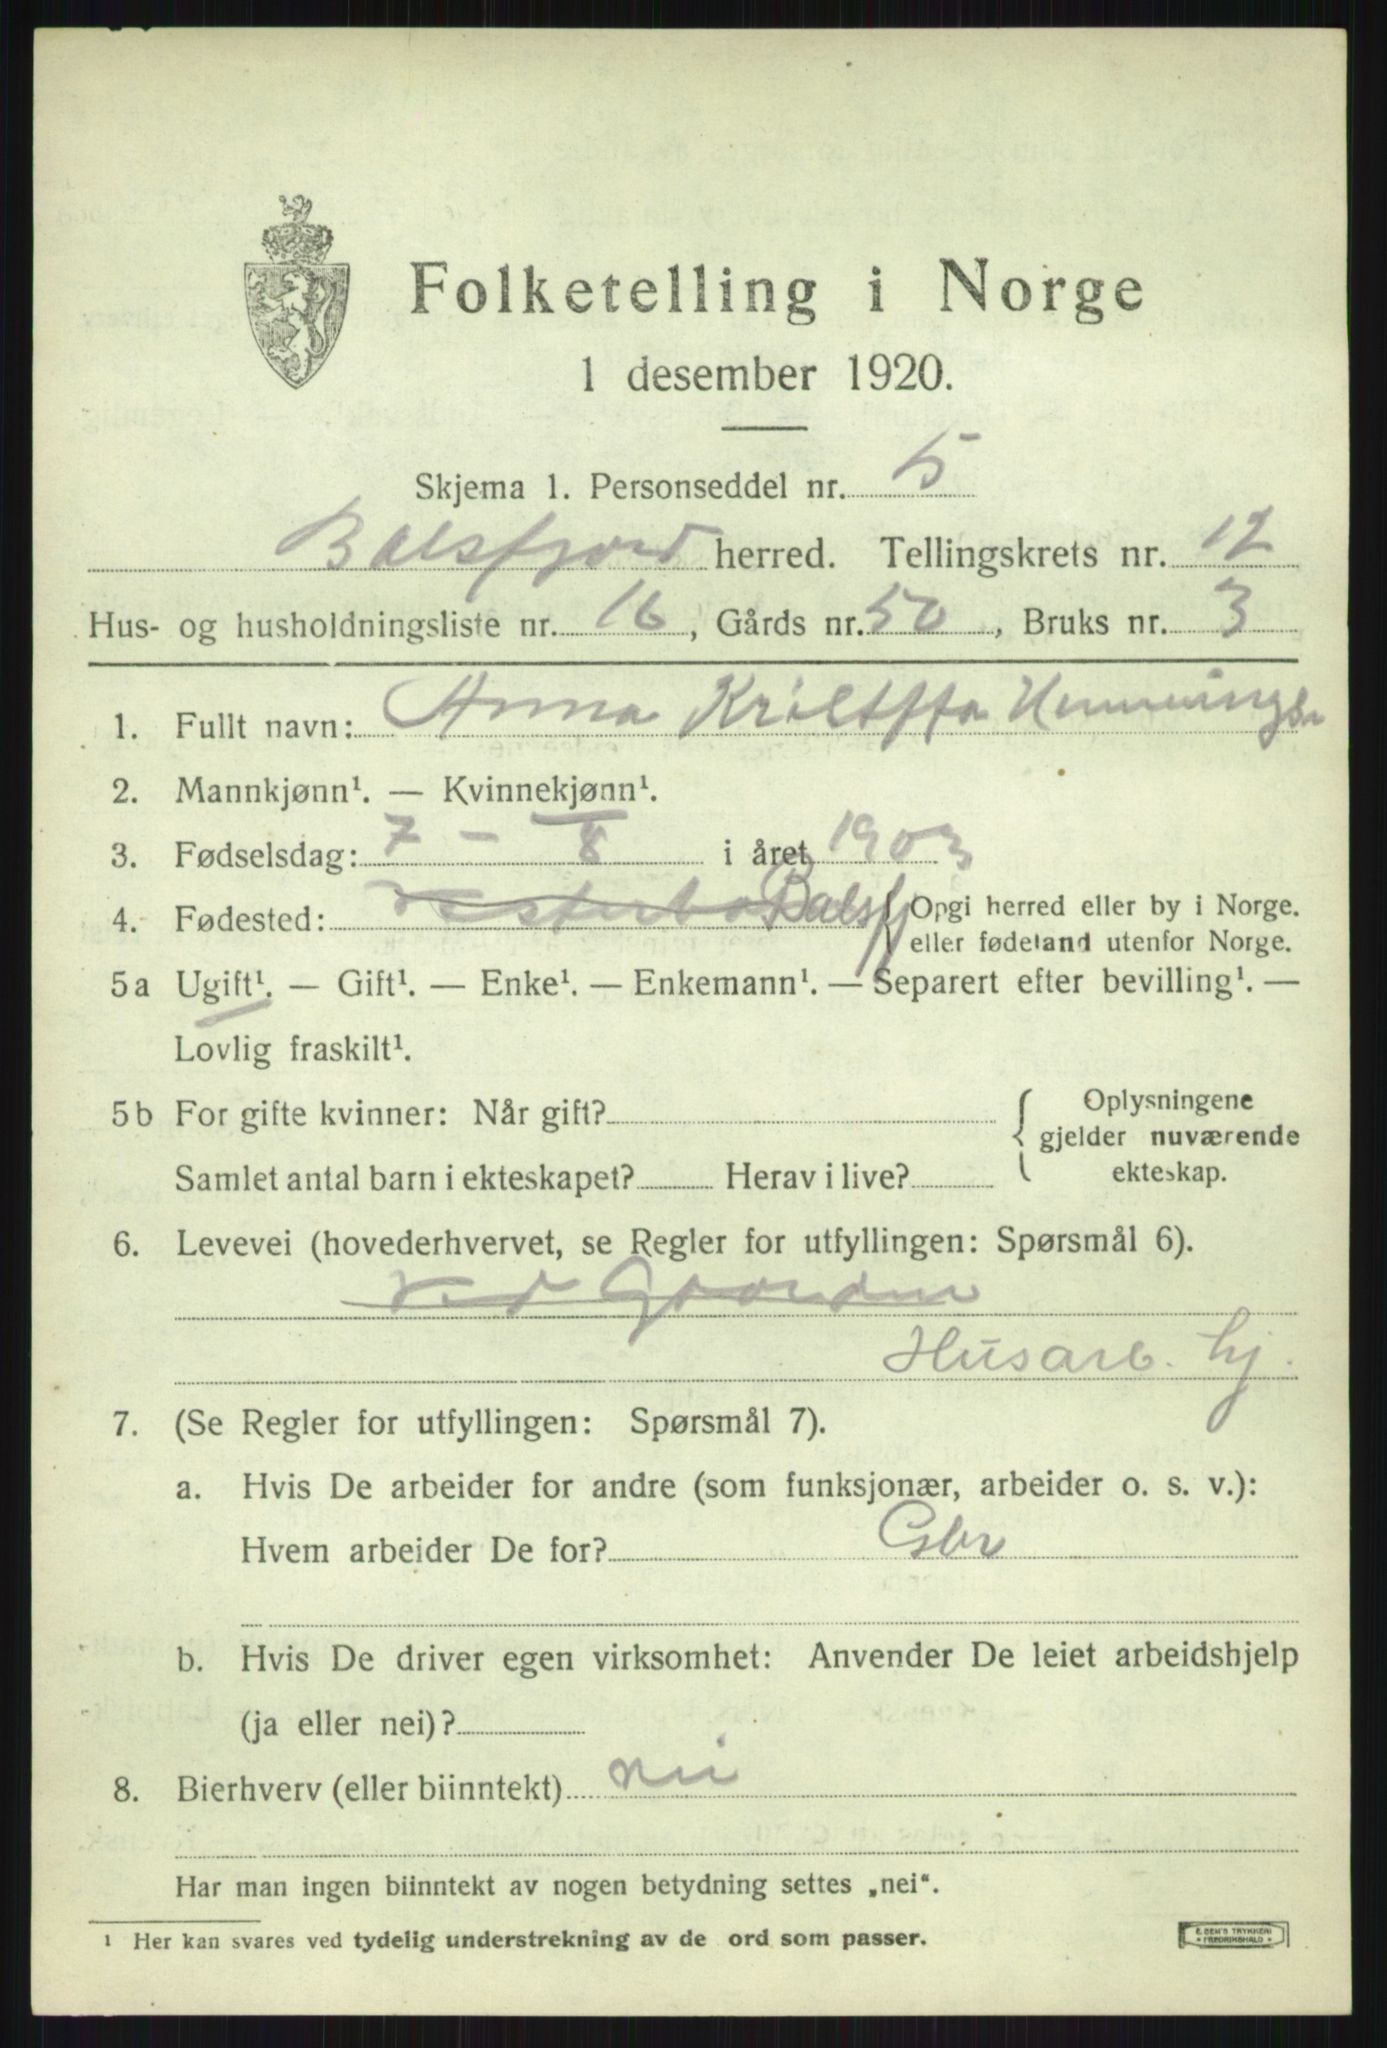 Folketelling i Norge
1 desember 1920.
Skjema 1. Personseddel nr. 5
Balsfjord herred. Tellingskrets nr. 12
Hus- og husholdningsliste nr. 16, Gårds nr. 50, Bruks nr. 3
1. Fullt navn: Anna Henningsn
2. Mannkjønn¹. — Kvinnekjønn¹.
3. Fødselsdag: 7 - 8 i året 1903
4. Fødested: Balsfj { Opgi herred eller by i Norge.
eller fødeland utenfor Norge.
5a Ugift¹. — Gift¹. — Enke¹. — Enkemann¹. — Separert efter bevilling¹. —
Lovlig fraskilt¹.
5b For gifte kvinner: Når gift? { Oplysningene
gjelder nuværende
Samlet antal barn i ekteskapet? Herav i live? ekteskap.
6. Levevei (hovederhvervet, se Regler for utfyllingen: Spørsmål 6).
Ved Gaarden
Husarb. hj.
7. (Se Regler for utfyllingen: Spørsmål 7).
a. Hvis De arbeider for andre (som funksjonær, arbeider o. s. v.):
Hvem arbeider De for? Gbr
b. Hvis De driver egen virksomhet: Anvender De leiet arbeidshjelp
(ja eller nei)?
8. Bierhverv (eller biinntekt) nei
Har man ingen biinntekt av nogen betydning settes „nei“.
¹ Her kan svares ved tydelig understrekning av de ord som passer.
E. SEM'S TRYKKERI
FREDRIKSHALD